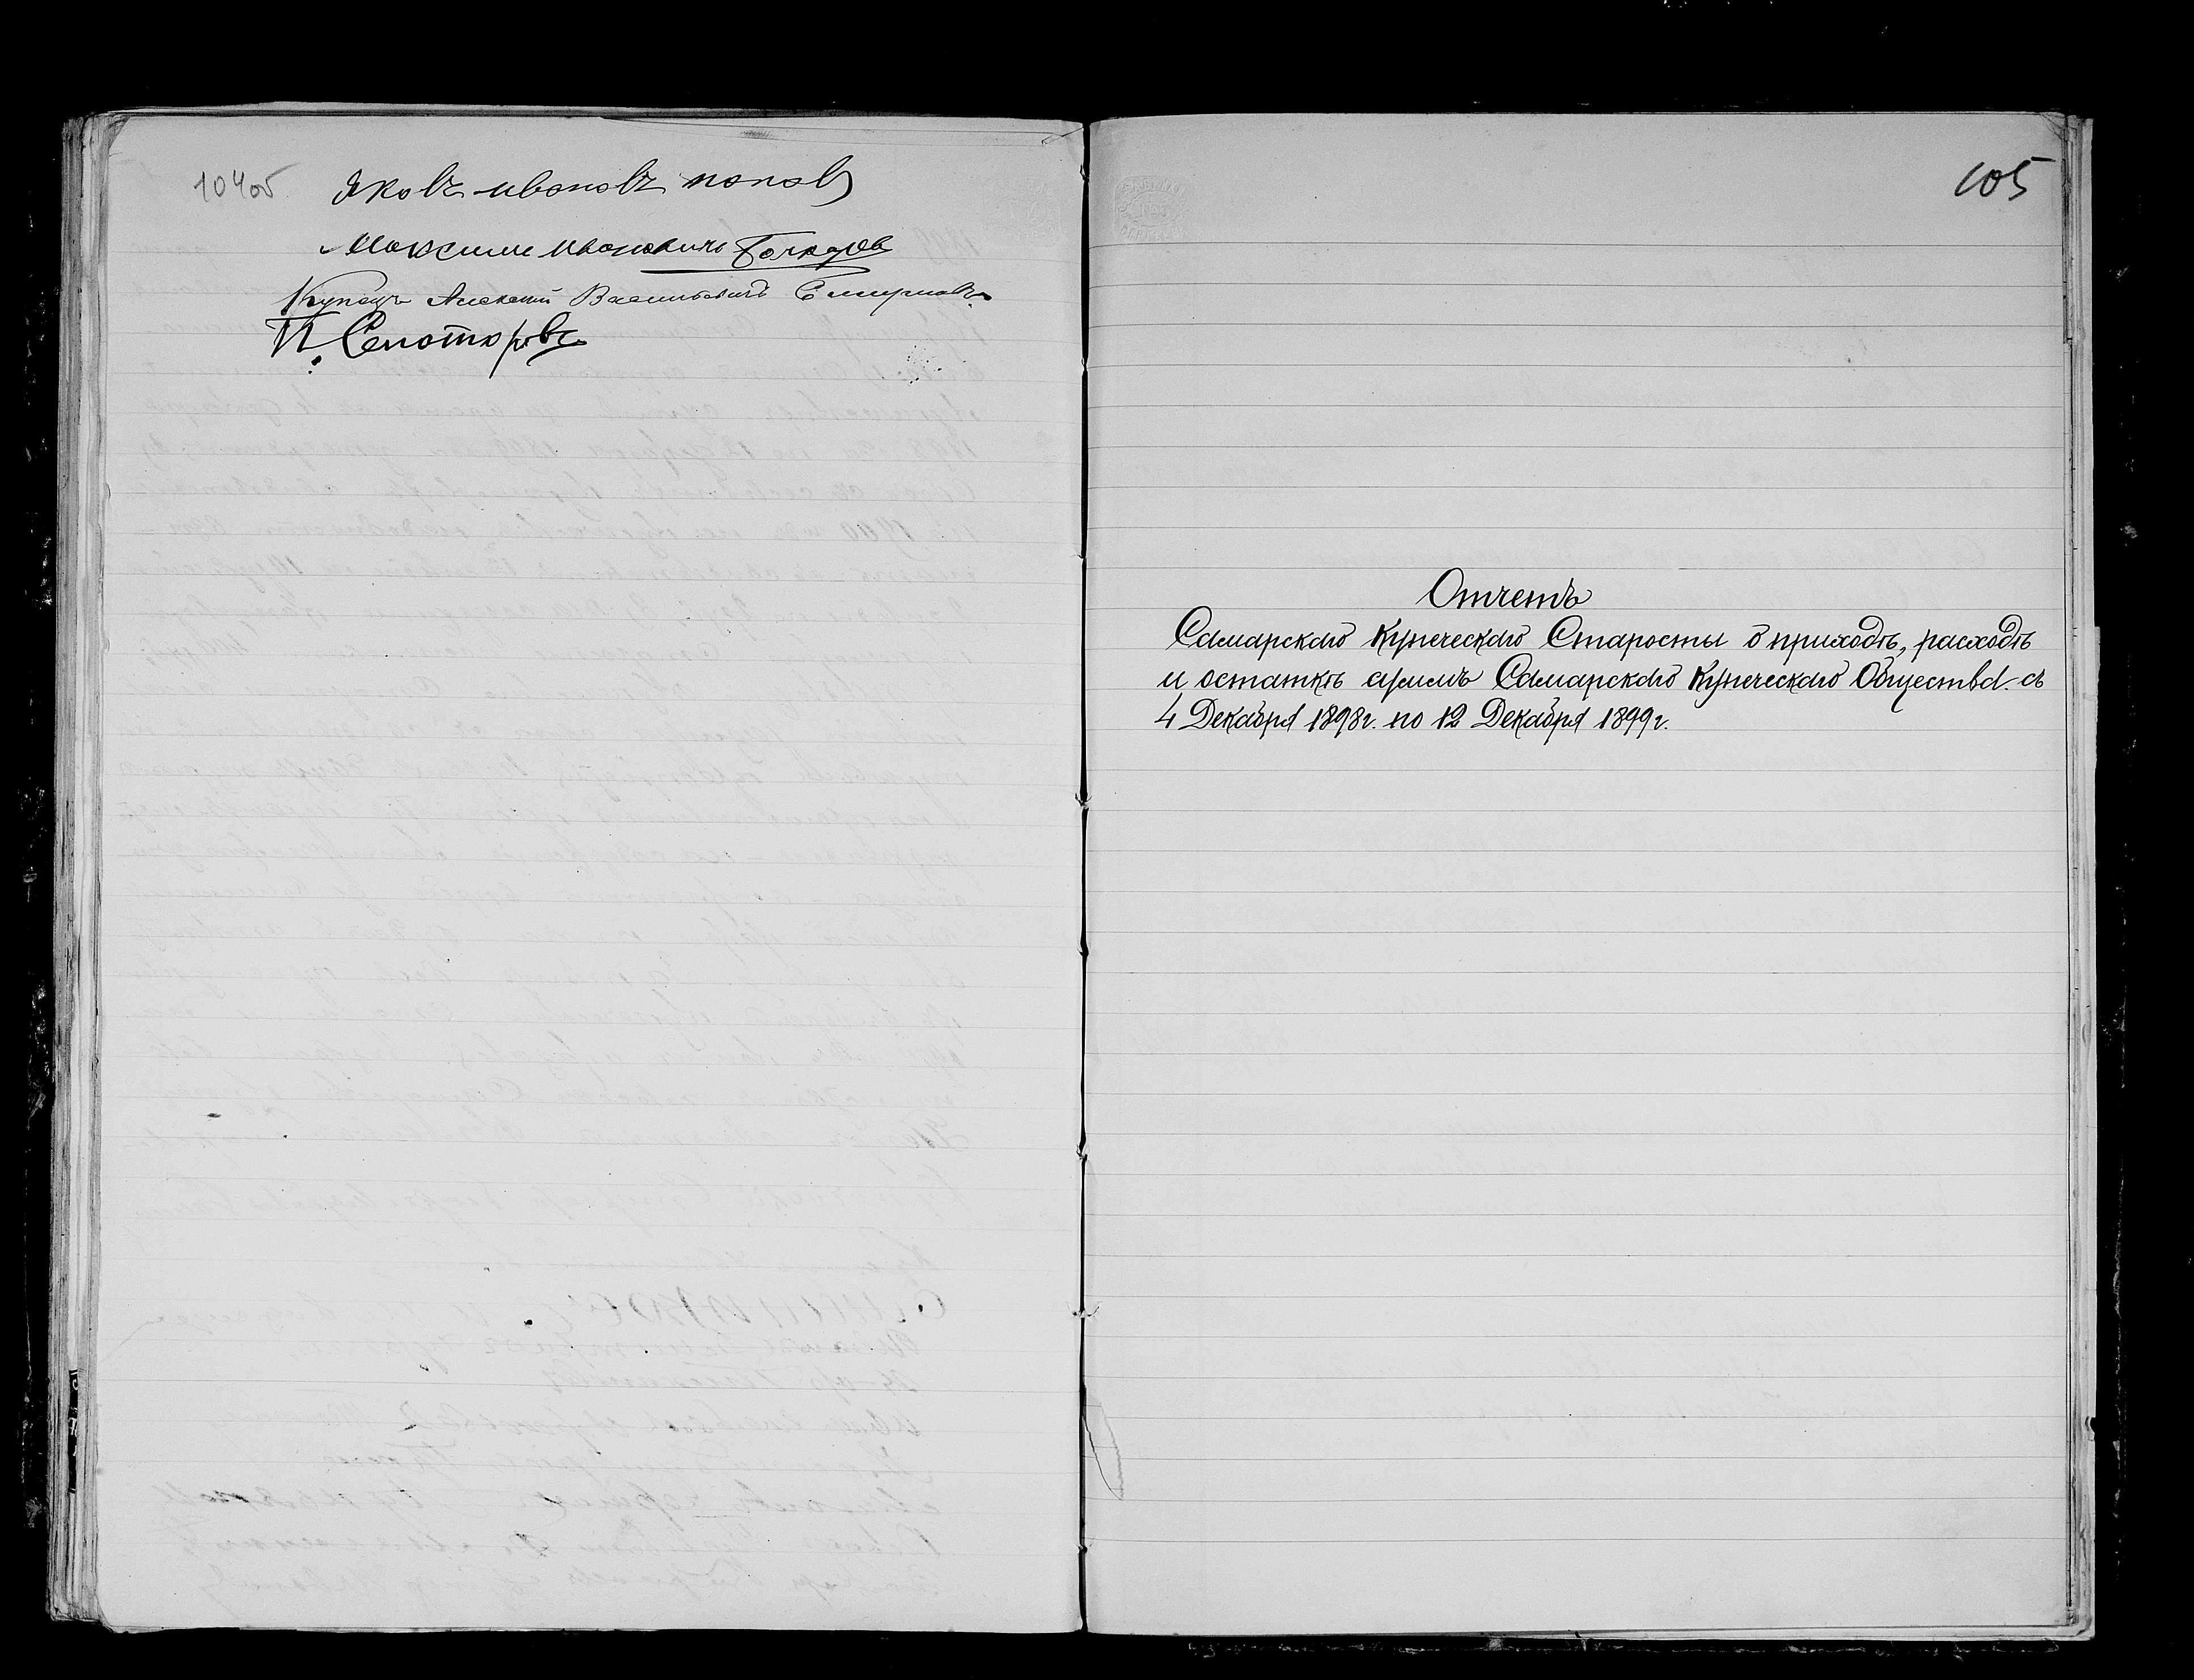 104об
Яковъ ивановъ попов
Максимъ Ивановичъ
Купецъ Алексей Васильевичъ Смирновъ
П.
105
Отчетъ
Самарскаго Купеческаго Старосты о приходѣ, расходѣ
и остаткѣ суммъ Самарскаго Купеческаго Общества съ
4 Декабря 1898г. по 12 Декабря 1899г.